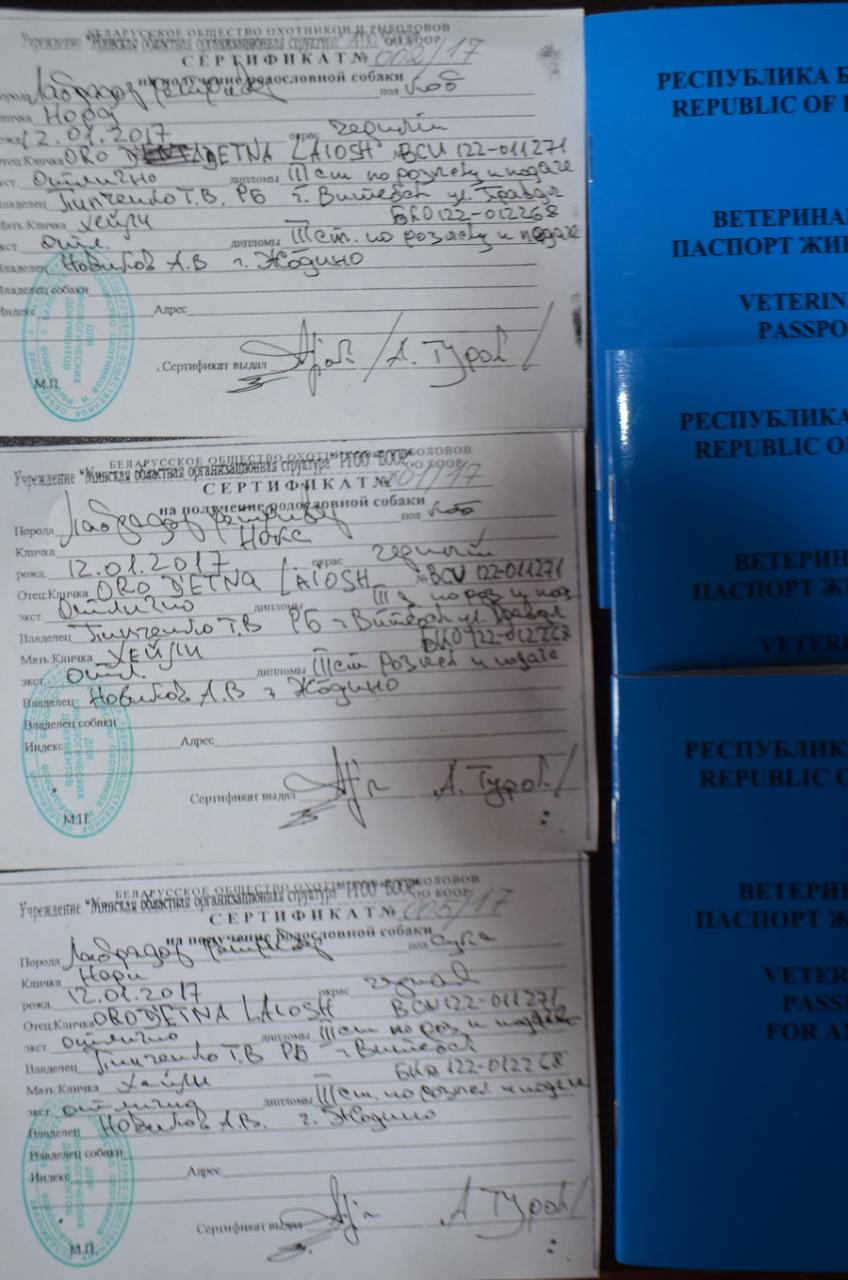 БЕЛАРУССКОЕ ОБЩЕСТВО ОХОТНИКОВ И РЫБОЛОВОВ
Учреждение "Минская областная организационная структура" ОО БООР
СЕРТИФИКАТ № 002/17
на получение родословной собаки
Порода Лабрадор пол Коб
Кличка Нора
рожд 12.01.2017 окрас черный
Отец.Кличка ORO D'ETNA LAIOSH BCU 122-011271
экст. отлично дипломы III ст по розыску и подаче
Владелец Пинченко Т.В. РБ г. Витебск ул. Правды
БКО 122-012268
Мать.Кличка Хейли
экст. отл. дипломы III ст. по розыску и подаче
Владелец Новиков А.В г. Жодино
Владелец собаки
Индекс Адрес
Сертификат выдал А. Туров
М.П.
БЕЛАРУССКОЕ ОБЩЕСТВО
Учреждение "Минская областная организационная структура" РГОО "БООР"
СЕРТИФИКАТ № 001/17
на получение родословной собаки
Порода Лабрадор пол Коб
Кличка Нокс
рожд 12.01.2017 окрас черный
Отец.Кличка ORO D'ETNA LAIOSH № BCU 122-011271
экст. Отлично дипломы III
Владелец Пинченко Т.В РБ г. Витебск ул. Правды
БКО 122-012268
Мать.Кличка ХЕЙЛИ
экст. отл. дипломы III ст розыск и подаче
Владелец Новиков А.В г Жодино
Владелец собаки
Индекс Адрес
Сертификат выдал А. Туров
М.П.
БЕЛАРУССКОЕ ОБЩЕСТВО
Учреждение "Минская областная организационная структура" РГОО "БООР"
СЕРТИФИКАТ № 005/17
на получение родословной собаки
Порода Лабрадор пол Сука
Кличка Нори
рожд 12.01.2017 окрас черная
Отец.Кличка ORO D'ETNA LAIOSH BCU 122-011271
экст. отлично дипломы III ст по роз и подаче
Владелец Пинченко Т.В РБ г. Витебск
БКО 122-012268
Мать.Кличка Хейли
экст отлично дипломы III ст. по розыск и подаче
Владелец Новиков А.В. г. Жодино
Владелец собаки
Индекс Адрес
Сертификат выдал А Туров
М.П.
РЕСПУБЛИКА Б
REPUBLIC OF
ВЕТЕРИНА
ПАСПОРТ ЖИВ
VETERIN
PASSPO
РЕСПУБЛИКА
REPUBLIC O
ВЕТЕРИН
ПАСПОРТ Ж
VETER
РЕСПУБЛИК
REPUBLIC O
ВЕТЕРИ
ПАСПОРТ Ж
VETER
PASS
FOR A